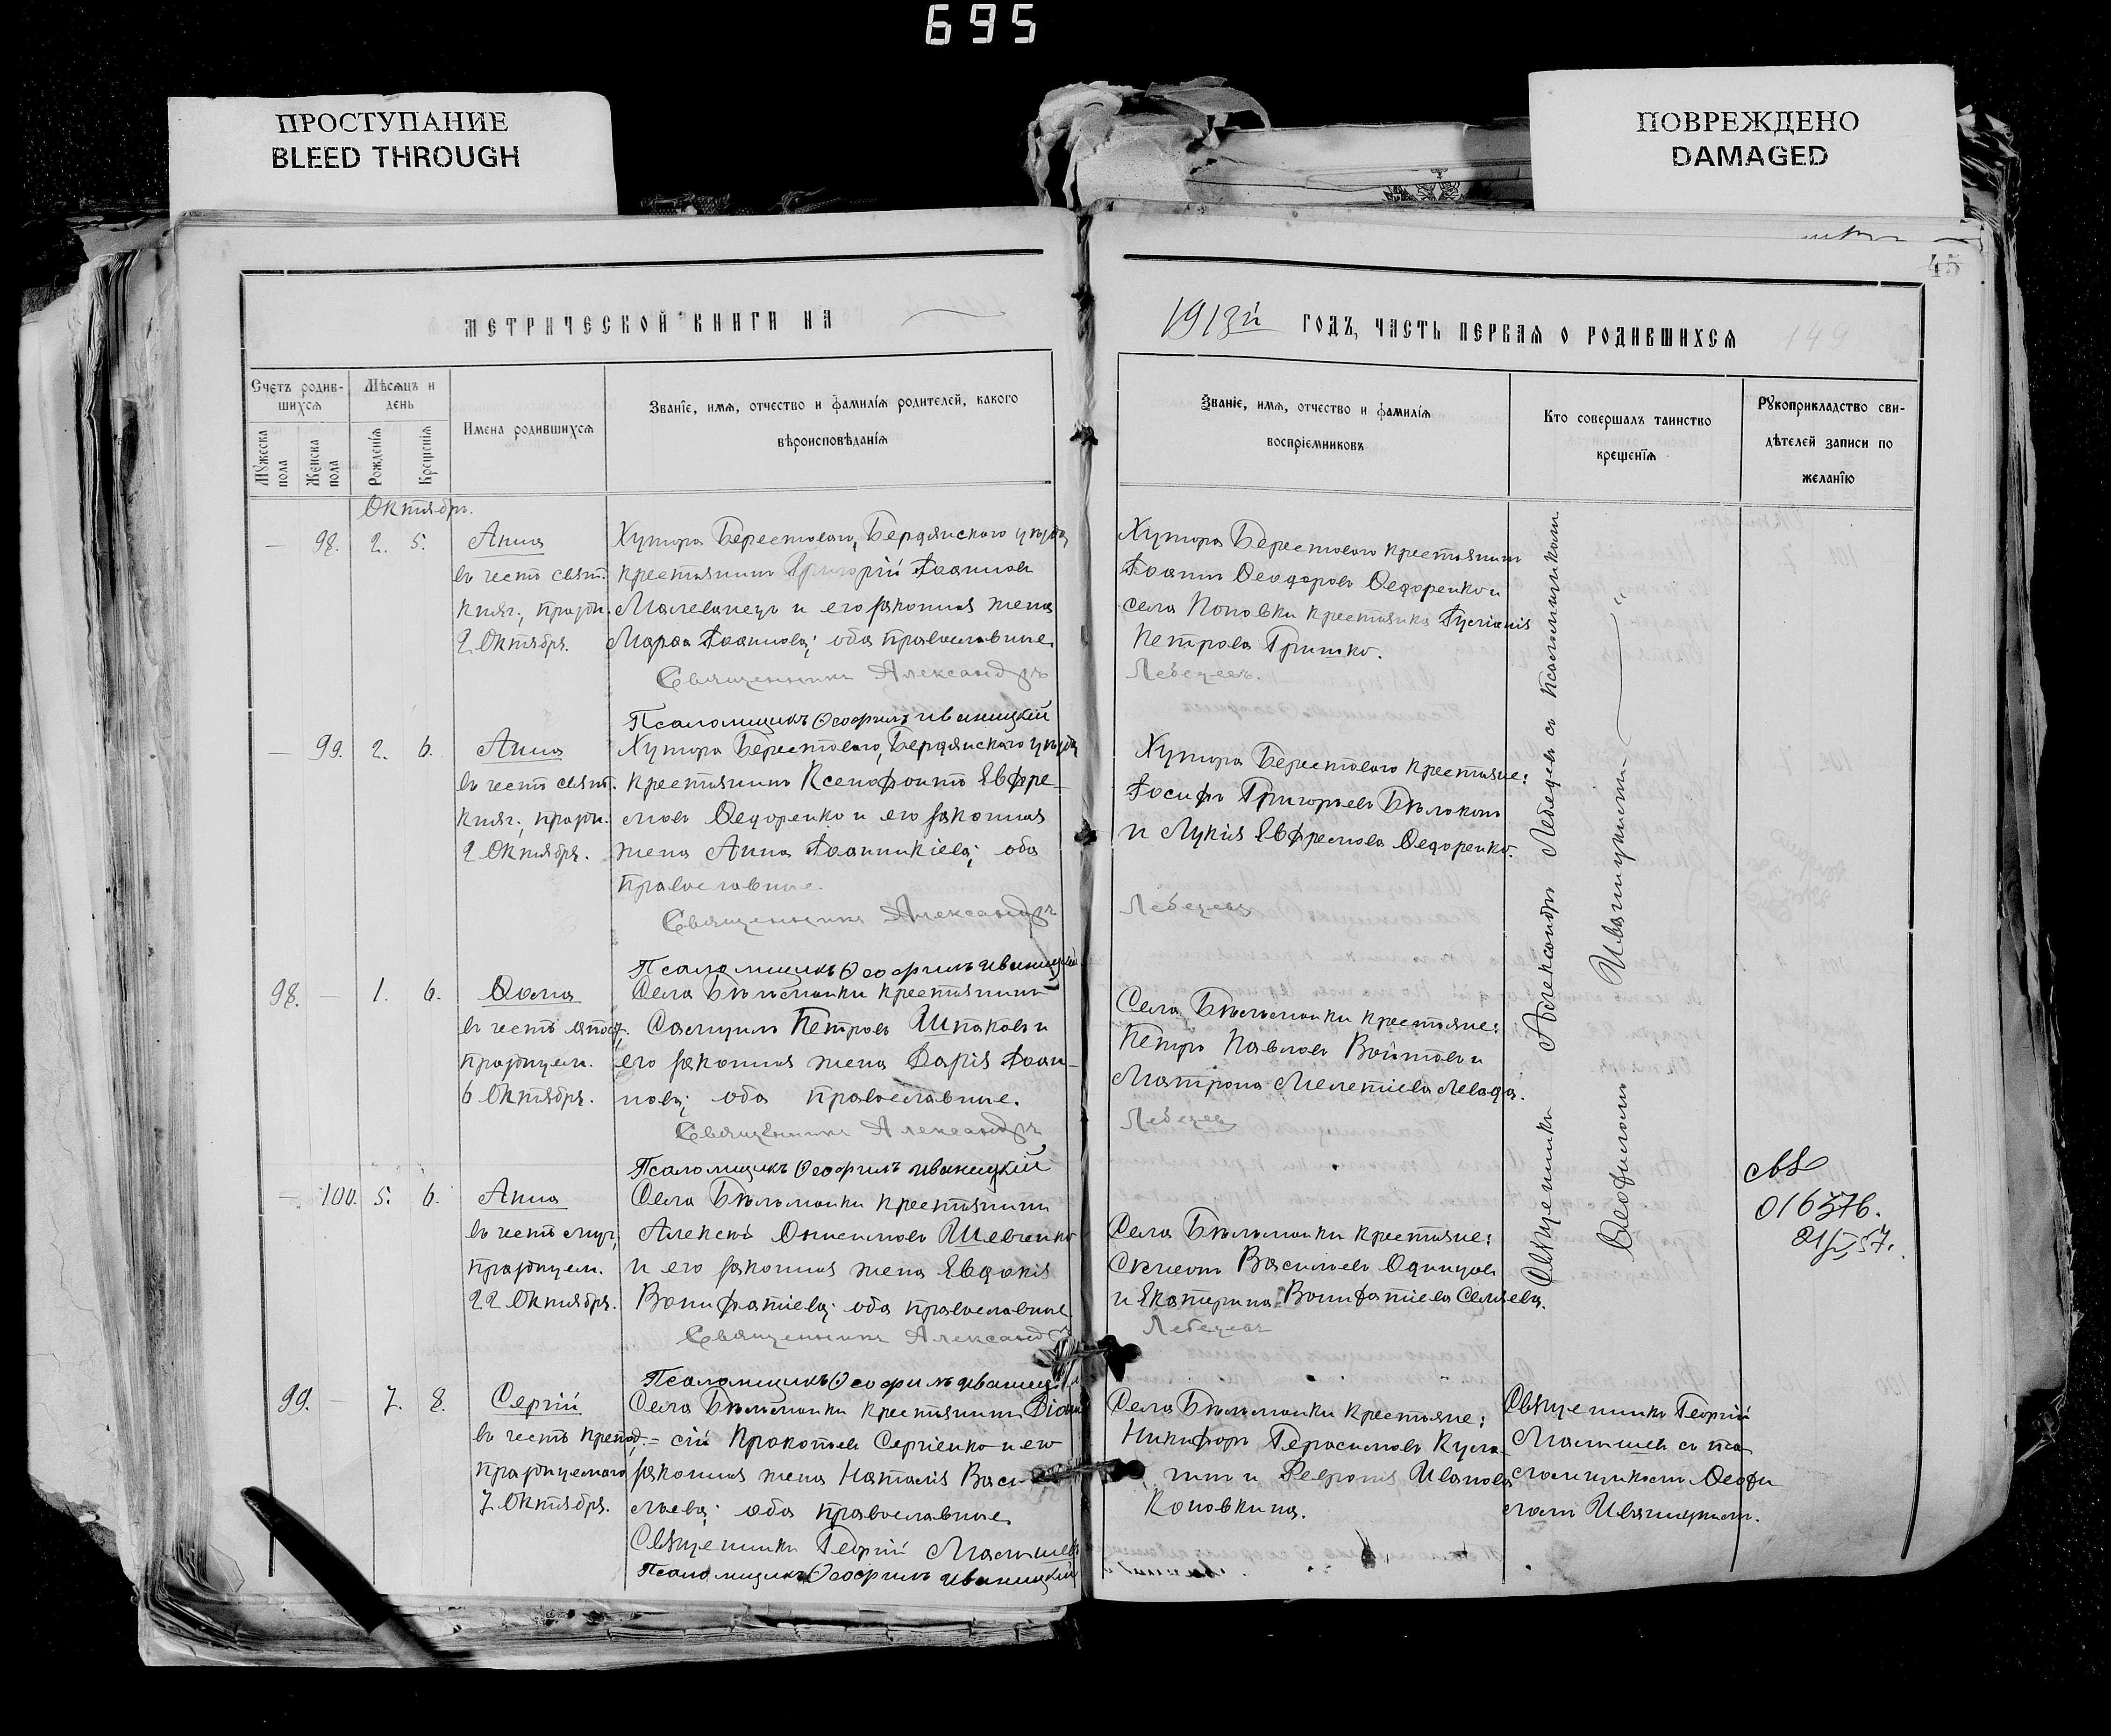 695
ПРОСТУПАНИЕ
BLEED THROUGH
ПОВРЕЖДЕНО
DAMAGED
45
МЕТРИЧЕСКОЙ КНИГИ НА
1913й ГОДЪ, ЧАСТЬ ПЕРВАЯ О РОДИВШИХСЯ
149
Счетъ родив-
шихся
Мѣсяцъ и
день
Мужеска
пола
Женска
пола
Рожденія
Крещенія
Имена родившихся
Званіе, имя, отчество и фамилія родителей, какого
вѣроисповѣданія
Званіе, имя, отчество и фамилія
воспріемниковъ
Кто совершалъ таинство
крещенія
Рукоприкладство сви-
дѣтелей записи по
желанію
Октябрь.
98. 2. 5.
Анна
въ честь свят.
княг., праздн.
2 Октября.
Хутора Берестоваго, Бердянскаго уѣзда
крестьянинъ Григорій Іоанновъ
Малеванецъ и его законная жена
Марѳа Іоаннова; оба православные
Священникъ Александръ
Псаломщикъ Ѳеофилъ Иваницкій
Хутора Берестоваго крестьянинъ
Іоаннъ Ѳеодоровъ Ѳедоренко и
села Поповки крестьянка
Петрова Гришко.
Лебедевъ.
99. 2. 6.
Анна
въ честь свят.
княг., праздн.
2 Октября.
Хутора Берестоваго, Бердянскаго уѣзда
крестьянинъ Ксенофонтъ Евфре-
мовъ Ѳедоренко и его законная
жена Анна Іоанникіева; оба
православные.
Священникъ Александръ
Псаломщикъ Ѳеофилъ Иваницкій
Хутора Берестоваго крестьяне:
Іосифъ Григорьевъ Бѣлоконь
и Лукія Евфремова Ѳедоренко.
Лебедевъ
98. 1. 6.
Ѳома
въ честь апост.
празднуем.
6 Октября.
Села Бѣльманки крестьянинъ
Самуилъ Петровъ Шпаковъ и
его законная жена Дарія Іоан-
нова; оба православные.
Священникъ Александръ
Псаломщикъ Ѳеофилъ Иваницкій
Села Бѣльманки крестьяне:
Петръ Павловъ Войтовъ и
Матрона Мелетіева Левада.
Лебедевъ
100. 5. 6.
Анна
въ честь муч.,
празднуем.
22 Октября.
Села Бѣльманки крестьянинъ
Алексѣй Онисимовъ Шевченко
и его законная жена Евдокія
Вонифатіева; оба православные
Священникъ Александръ
Псаломщикъ Ѳеофилъ Иваницкій
Села Бѣльманки крестьяне:
Васильевъ Одинцовъ
и Екатерина Вонифатіева
Лебедевъ
Священникъ Александръ Лебедевъ съ псаломщикомъ
Ѳеофиломъ Иваницкимъ
016376.
99. 7. 8.
Сергій
въ честь препод.
празднуемаго
7 Октября.
Села Бѣльманки крестьянинъ Діони-
сій Прокопьевъ Сергіенко и его
законная жена Наталія Васи-
льева; оба православные
Священникъ Георгій Малышевъ
Псаломщикъ Ѳеофилъ Иваницкій
Села Бѣльманки крестьяне:
Никифоръ Герасимовъ
и Февронія Иванова
Коновкина.
Священникъ Георгій
Малышевъ съ пса-
ломщикомъ Ѳеофи-
ломъ Иваницкимъ.